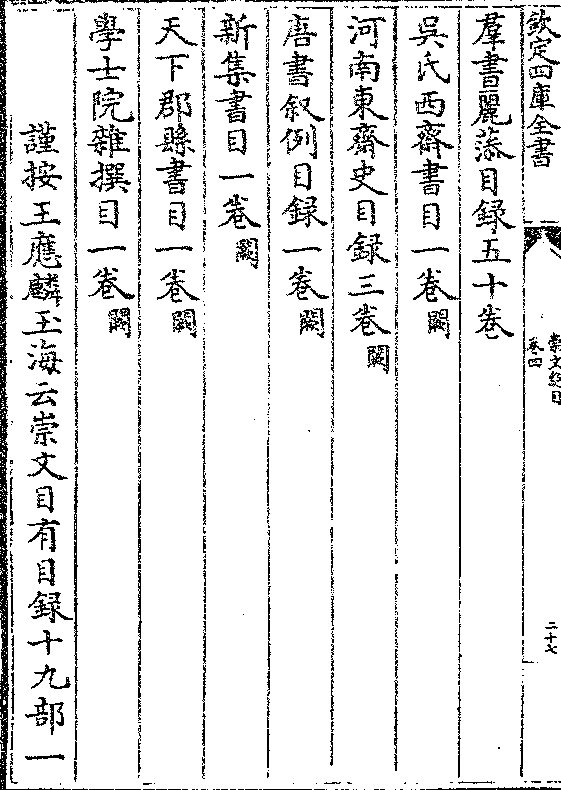 欽定四庫全書
崇文總目
卷四
二十七
羣書麗藻目録五十卷
吳氏西齋書目一卷闕
河南東齋史目録三卷闕
唐書叙例目録一卷闕
新集書目一卷闕
天下郡縣書目一卷闕
學士院雜撰目一卷闕
謹按王應麟玉海云崇文目有目録十九部一